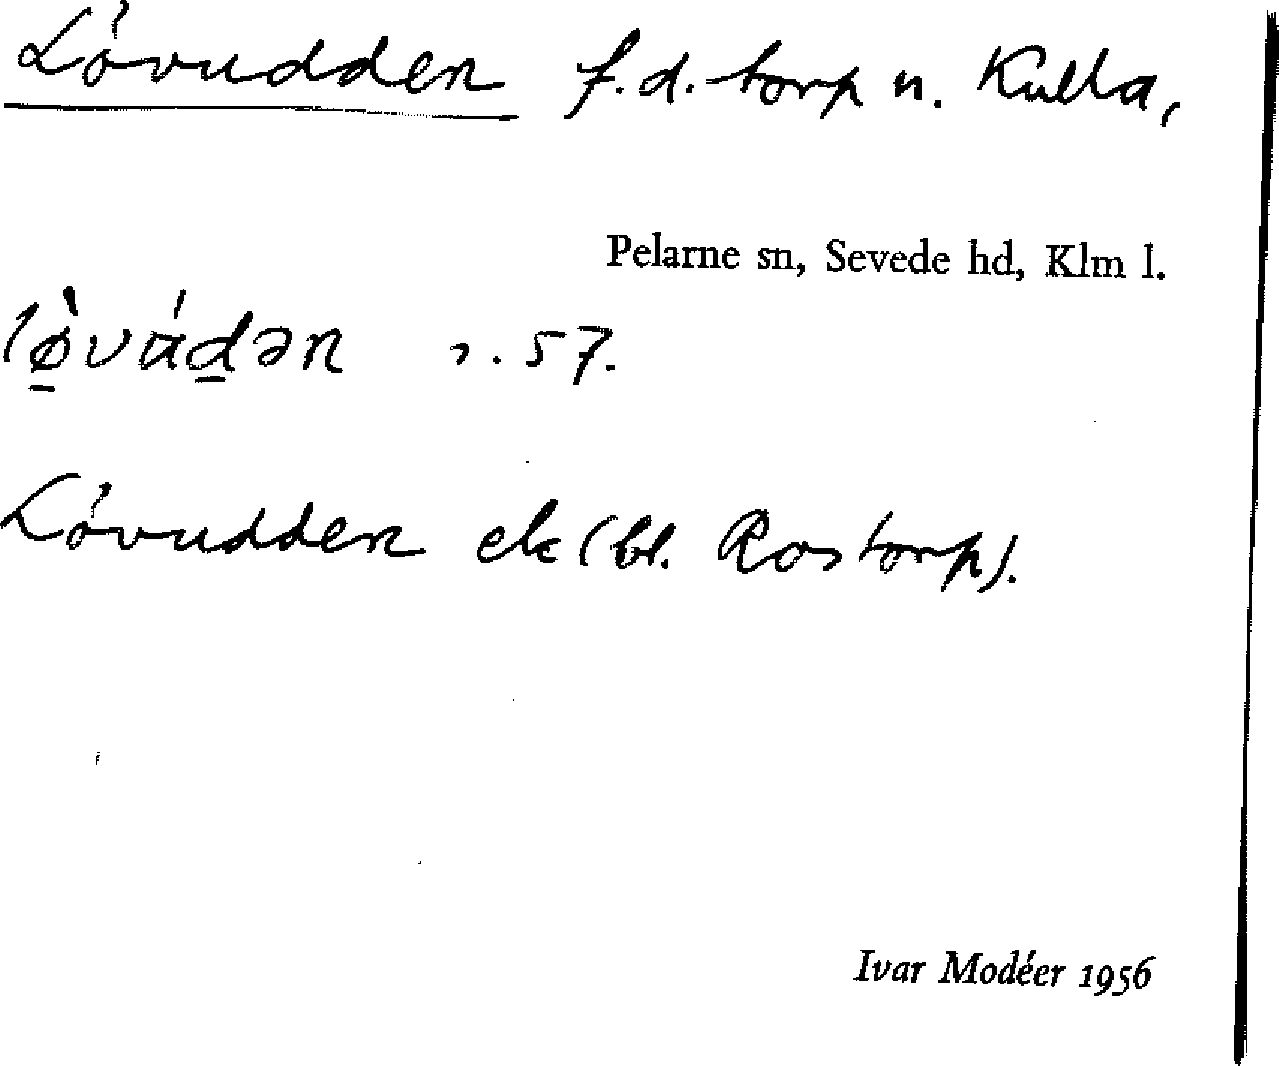 Lövudden f.d. torp u. Kulla,
Pelarne sn, Sevede hd, Klm l.
lø̠̀vɑ́d̠ən s. 57.
Lövudden ek (bl. Rostorp).
Ivar Modéer 1956